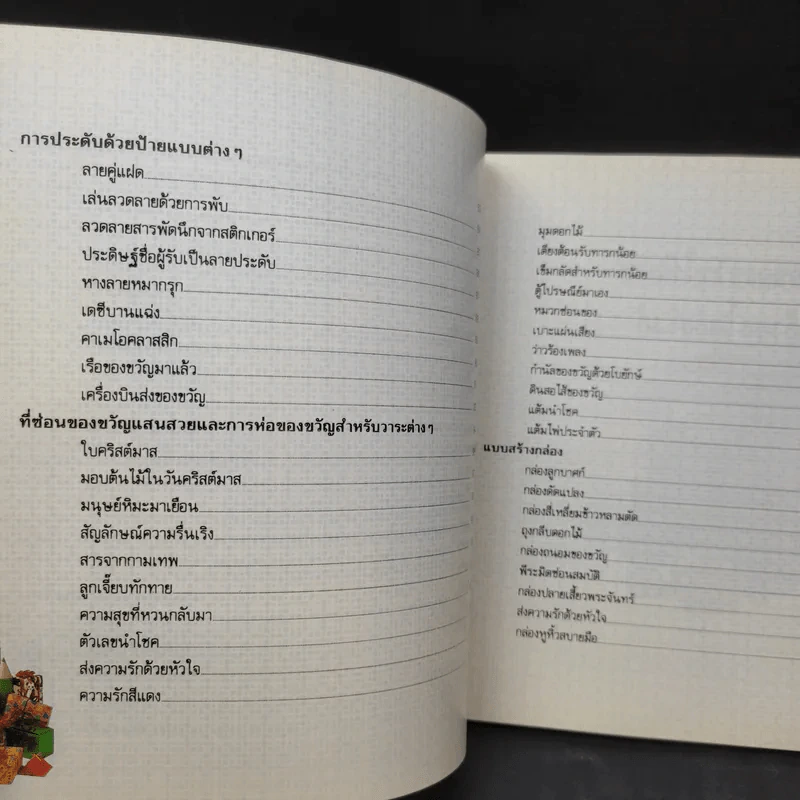 การประดับด้วยป้ายแบบต่าง ๆ
ลายคู่แฝด
เล่นลวดลายด้วยการพับ
ลวดลายสารพัดนึกจากสติกเกอร์
ประดิษฐ์ชื่อผู้รับเป็นลายประดับ
หางลายหมากรุก
เดซีบานแฉ่ง
คาเมโอคลาสสิก
เรือของขวัญมาแล้ว
เครื่องบินส่งของขวัญ
ที่ซ่อนของขวัญแสนสวยและการห่อของขวัญสำหรับวาระต่าง ๆ
ใบคริสต์มาส
มอบต้นไม้ในวันคริสต์มาส
มนุษย์หิมะมาเยือน
สัญลักษณ์ความรื่นเริง
สารจากกามเทพ
ลูกเจี๊ยบทักทาย
ความสุขที่หวนกลับมา
ตัวเลขนำโชค
ส่งความรักด้วยหัวใจ
ความรักสีแดง
มุมดอกไม้
เตียงต้อนรับทารกน้อย
เข็มกลัดสำหรับทารกน้อย
ตู้ไปรษณีย์มาเอง
หมวกซ่อนของ
เบาะแผ่นเสียง
ว่าวร้องเพลง
กำนัลของขวัญด้วยโบยักษ์
ดินสอไส้ของขวัญ
แต้มนำโชค
แต้มไพ่ประจำตัว
แบบสร้างกล่อง
กล่องลูกบาศก์
กล่องดัดแปลง
กล่องสี่เหลี่ยมข้าวหลามตัด
ถุงกลีบดอกไม้
กล่องถนอมของขวัญ
พีระมิดซ่อนสมบัติ
กล่องปลายเสี้ยวพระจันทร์
ส่งความรักด้วยหัวใจ
กล่องหูหิ้วสบายมือ